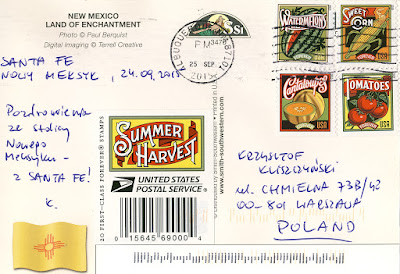 NEW MEXICO
LAND OF ENCHANTMENT
Photo © Paul Berquist
Digital Imaging © Terrell Creative
SANTA FE
NOWY MEKSYK, 24.09.2015
Pozdrowienia
ze stolicy
Nowego
Meksyku -
z SANTA FE!
K.
20 FIRST-CLASS FOREVER® STAMPS
SUMMER
HARVEST
UNITED STATES
POSTAL SERVICE®
0 15645 69000 4
www.smith-southwestern.com
ALBUQUERQUE
PM
25 SEP
2015
WATERMELONS
SWEET
CORN
Cantaloupes
USA
TOMATOES
USA
KRZYSZTOF
KLISZCZYŃSKI
ul. CHMIELNA 73B/42
00-801 WARSZAWA
POLAND